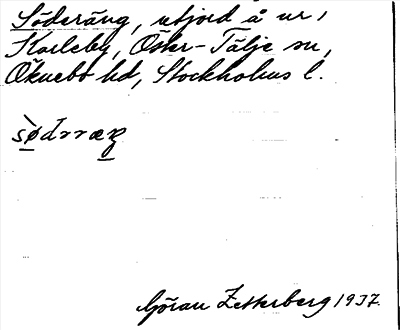 Söderäng, utjord å nr 1
Karleby, Öster-Tälje sn,
Öknebo hd, Stockholms l.
Göran Zetterberg 1937.